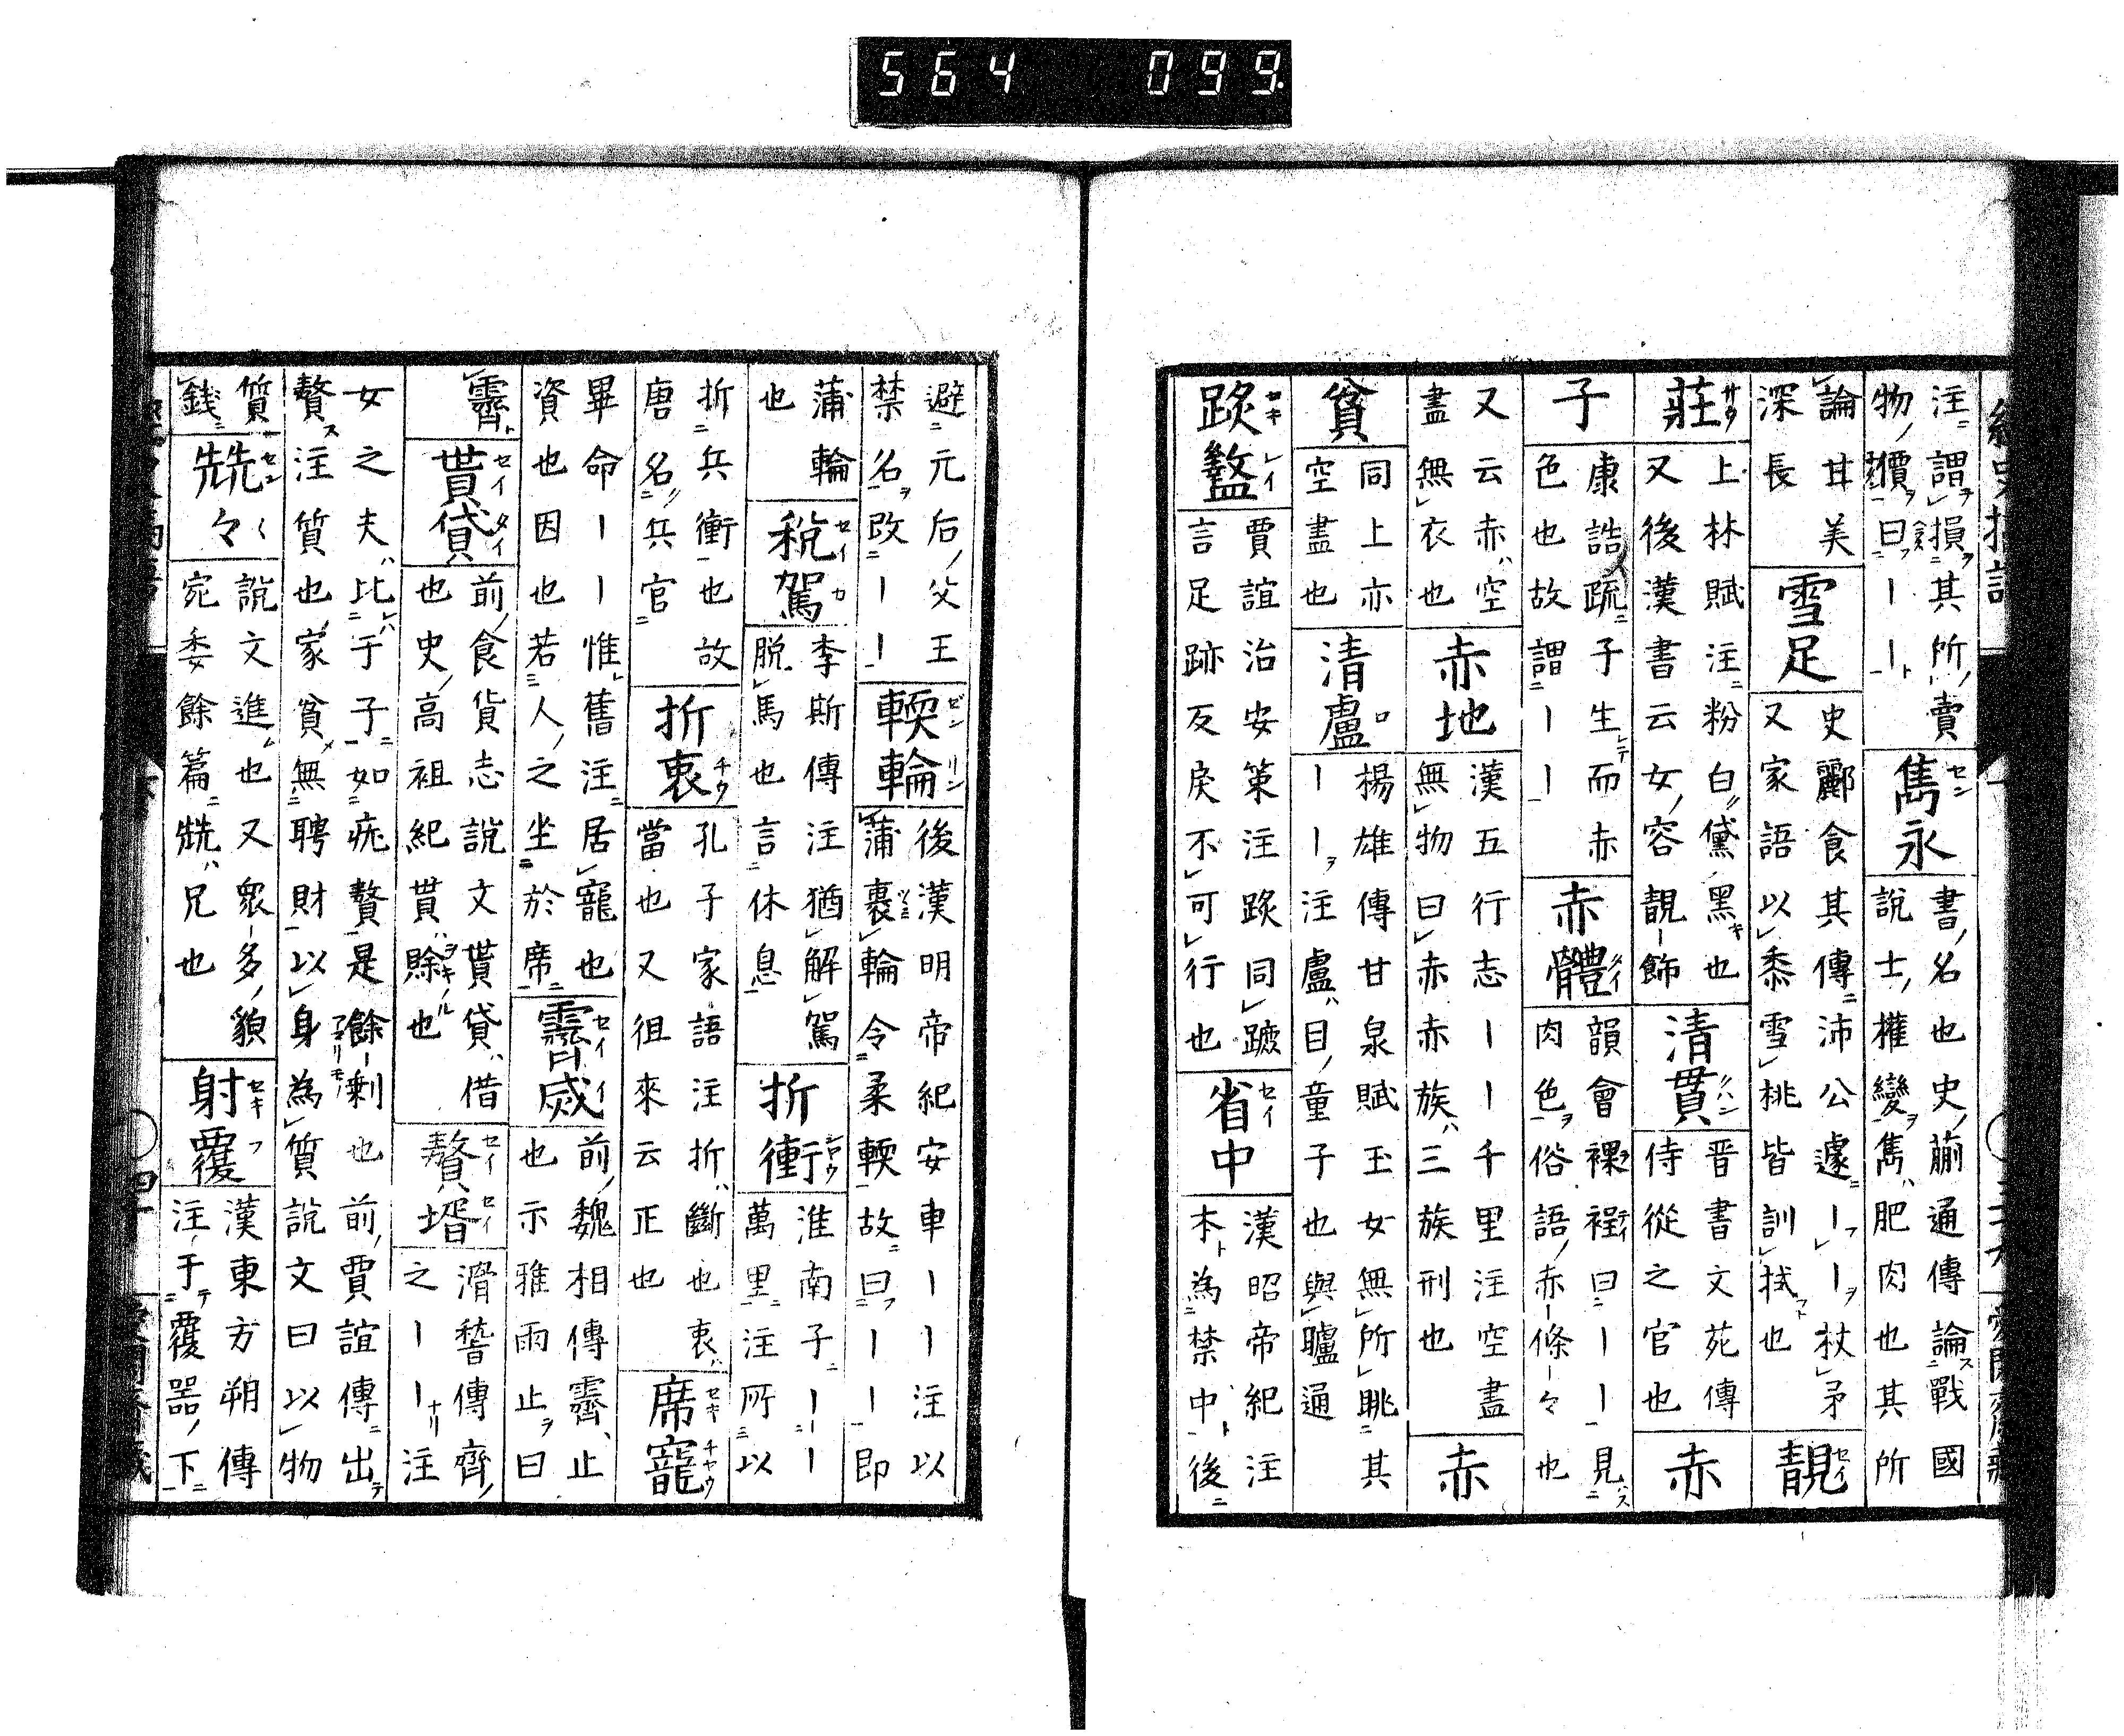 經史摘語
注謂損其所賣
物價曰ーー
雋永
書名也史蒯通傳論戰國
說士權變雋肥肉也其所
論甘美
深長
雪足
史酈食其傳沛公遽ーー杖矛
又家語以黍雪桃皆訓拭也
靚
莊
上林賦注粉白黛黑也
又後漢書云女容靚飾
清貫
晋書文苑傳
侍從之官也
赤
子
康誥疏子生而赤
色也故謂ーー
赤體
韻會裸裎曰ーー見
肉色俗語赤條々也
又云赤空
盡無衣也
赤地
漢五行志ーー千里注空盡
無物曰赤赤族三族刑也
赤
貧
同上亦
空盡也
清盧
楊雄傳甘泉賦玉女無所眺其
ーー注盧目童子也與矑通
䠠盭
賈誼治安策注䠠同蹠
言足跡反戾不可行也
省中
漢昭帝紀注
本為禁中後
避元后父王
禁名改ーー
輭輪
後漢明帝紀安車ーー注以
蒲裹輪令柔輭故曰ーー即
蒲輪
也
稅駕
李斯傳注猶解駕
脫馬也言休息
折衝
淮南子ーー
萬里注所以
折兵衝也故
唐名兵官
折衷
孔子家語注折斷也衷
當也又徂來云正也
席寵
畢命ーー惟舊注居寵也
資也因也若人之坐於席
霽威
前魏相傳霽止
也示雅雨止曰
霽
貰貸
前食貨志說文貰貸借
也史高祖紀貰賒也
贅壻
滑稽傳齊
之ーー注
女之夫比于子如疣贅是餘剩也前賈誼傳出
贅注質也家貧無聘財以身為質說文曰以物
質
錢
兟々
說文進也又衆多貌
宛委餘篇兟兄也
射覆
漢東方朔傳
注于覆器下
四十
564 099